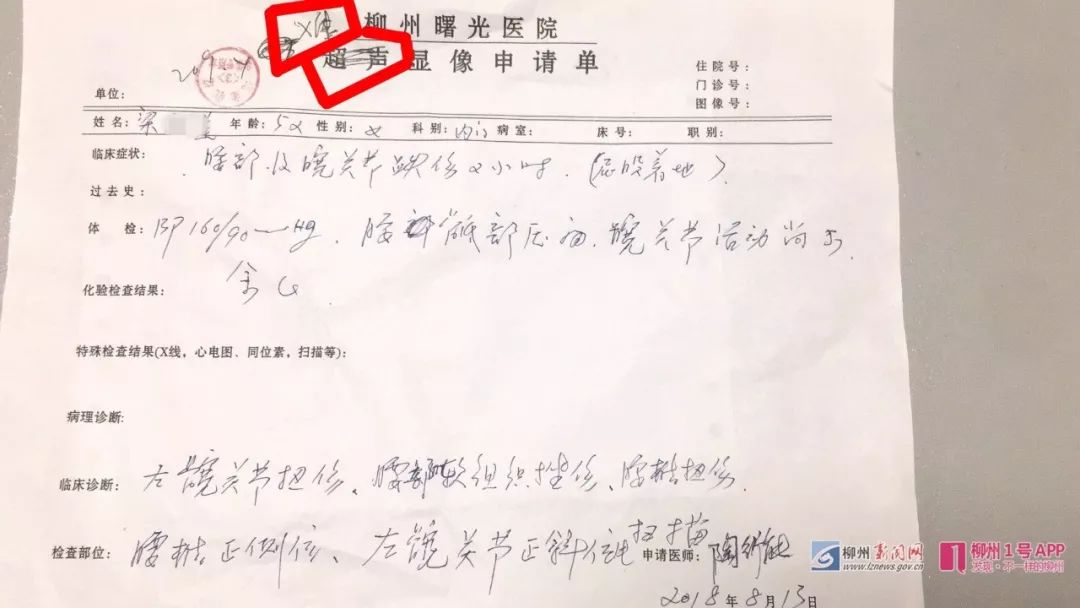 X线 柳州曙光医院
超声显像申请单
住院号：
门诊号：
单位：
图像号：
姓名：梁 美 年龄：5 性别：女 科别：内门 病室： 床号： 职别：
临床症状： 腰部及髋关节跌伤2小时.（屁股着地）.
过去史：
体 检：BP 160/90mmHg. 腰 骶部压痛. 髋关节活动尚可.
化验检查结果： 余(-)
特殊检查结果(X线，心电图、同位素，扫描等)：
病理诊断：
临床诊断： 左髋关节扭伤、腰部软组织挫伤、腰椎扭伤.
检查部位： 腰椎正侧位、左髋关节正斜位 扫描 申请医师：陶
2018年8月13日
柳州新闻网
www.lznews.gov.cn
柳州1号APP
发现·不一样的柳州